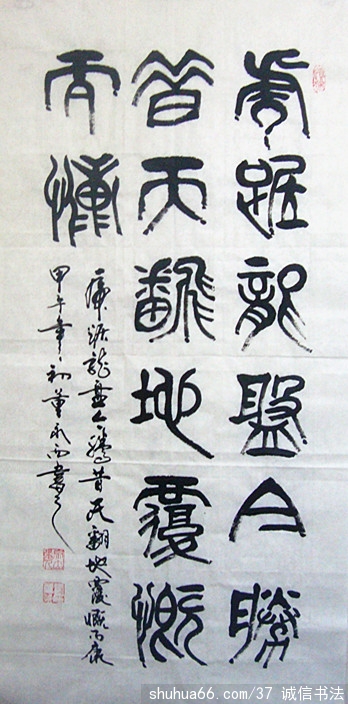 虎踞龍盤今勝
昔天翻地覆慨
而慷
虎踞龍盤今勝昔天翻地覆慨而慷
甲午年初董書
shuhua66.com/37 诚信书法